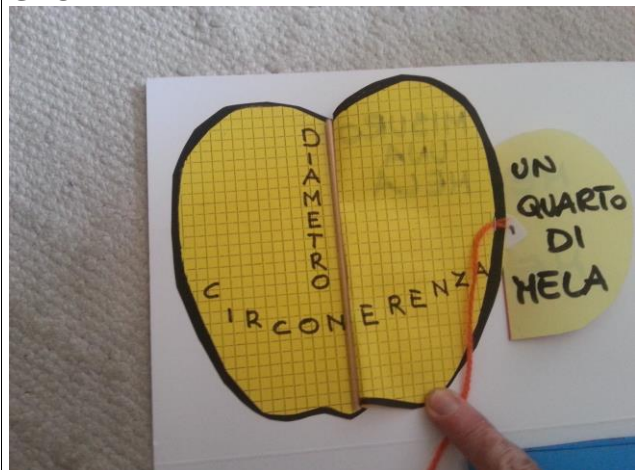 DIAMETRO
CIRCONERENZA
UN
QUARTO
DI
MELA